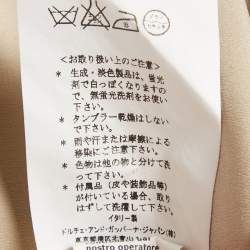 <お取り扱い上のご注意>
* 生成・淡色製品は、蛍光
剤で白っぽくなりますの
で、無蛍光洗剤をお使い
下さい。
* タンブラー乾燥はしない
で下さい。
* 雨や汗または摩擦による
移染にご注意下さい。
* 色物は他の物と分けて洗
って下さい。
* 付属品(皮や装飾品等)
が付いている場合、取り
はずして洗濯して下さい。
イタリー製
ドルチェ・アンド・ガッバーナ・ジャパン(株)
東京都港区北青山
nostro operatore